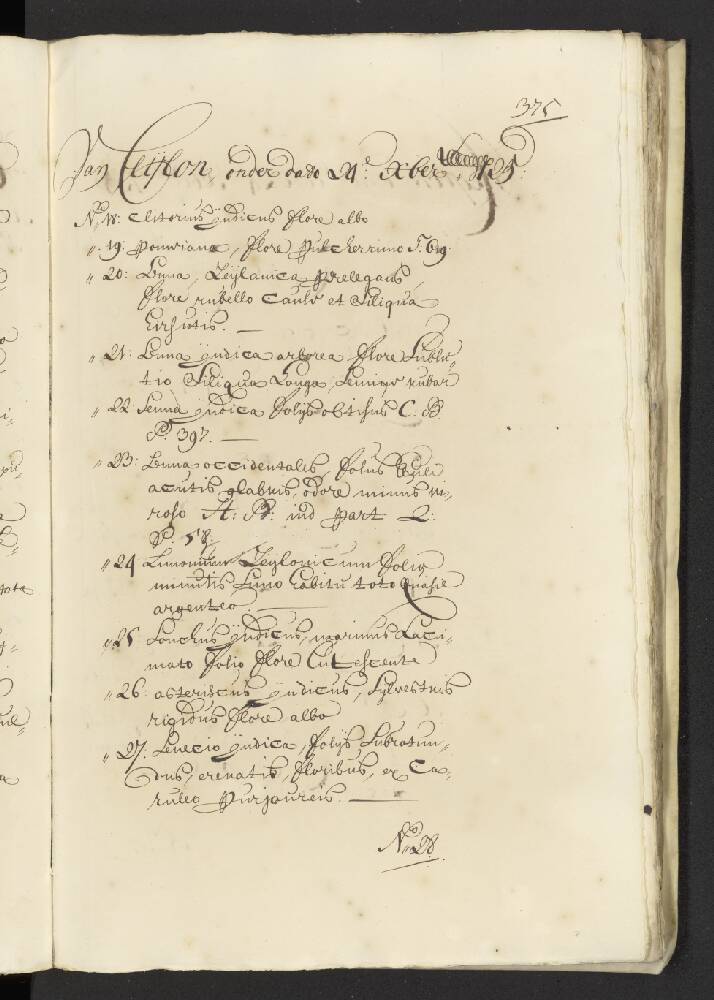 375
Jan Clifson, onder dato 24.e Xber 1725:
No. 18: Clitorius Jndicus flore albo
„ 19: Poinciana, flore pulcherrimo T. 619.
„ 20: Senna, Zeylanica prelegans
flore rubello caule et Siliqua
hirsutis. —
„ 21: Senna Jndica arborea flore Sublu-
tio Siliqua Longa, Semine rubro
„ 22 Senna Jndica folijs obtusis C. B.
P. 397. —
„ 23: Senna occidentalis, folijs
acutis glabris, odore minus vi-
roso H: B: ind part 2:
P: 58.
„ 24 Limonium Zeylonicum folijs
minutis fimo habitu toto quasie
argenteo. —
„ 25 Sonchus Jndicus, marinus Laci-
niato folio flore Lutescente
„ 26: asteriscus Jndicus, Sylvestris
rigidus flore albo
„ 27. Senecio Jndica, folijs Subrotun-
dus, crenatis, floribus, ex Cæ-
ruleo purpureis. —
No. 28